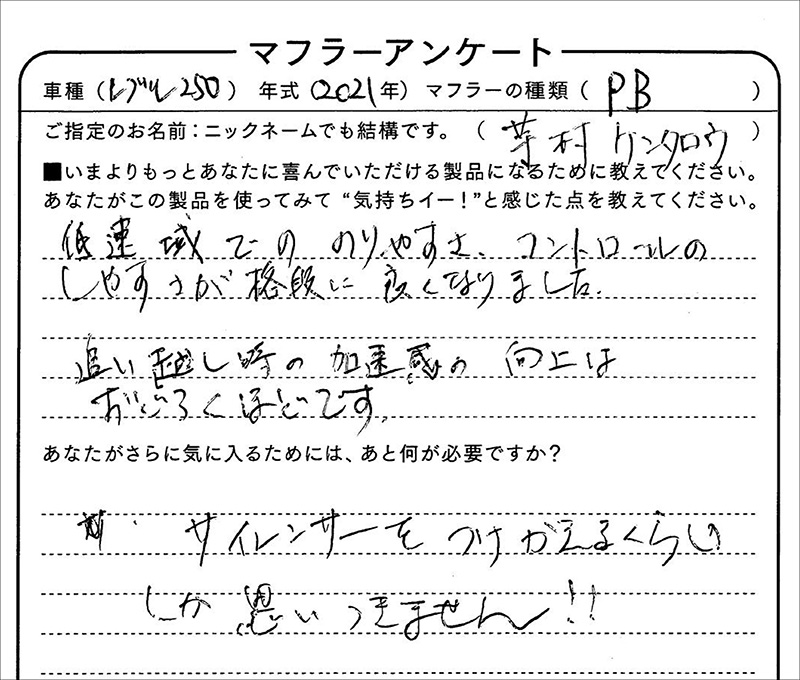 マフラーアンケート
車種（レブル250）年式（2021年）マフラーの種類（PB）
ご指定のお名前：ニックネームでも結構です。（芳村ケンタロウ）
■いまよりもっとあなたに喜んでいただける製品になるために教えてください。
あなたがこの製品を使ってみて“気持ちイー！”と感じた点を教えてください。
低速域での のりやすさ、コントロールの
しやすさが格段に良くなりました。
追い越し時の加速感の向上は
おどろくほどです。
あなたがさらに気に入るためには、あと何が必要ですか？
サイレンサーをつけかえるくらい
しか思いつきません!!